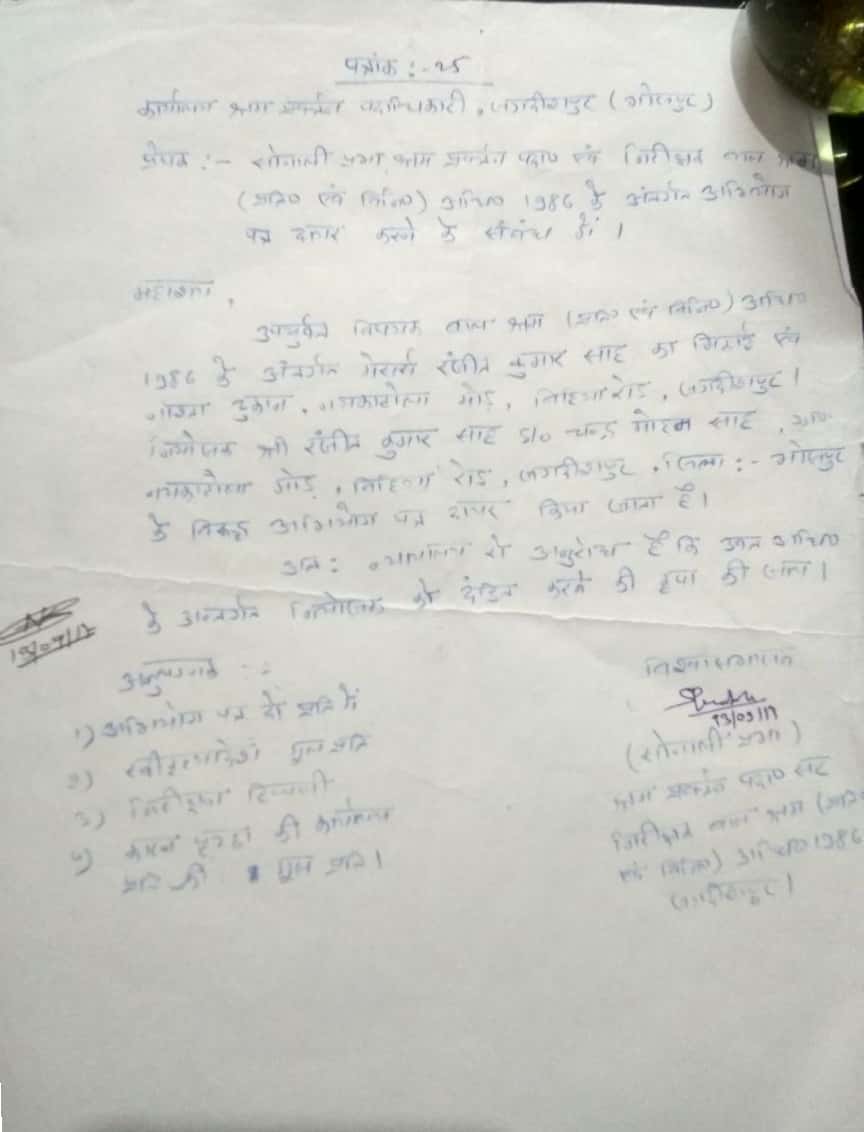 पत्रांक :- 25
कार्यालय श्रम प्रवर्तन पदाधिकारी, जगदीशपुर (भोजपुर)
प्रेषक :- सोनाली प्रभा, श्रम प्रवर्तन पदा० एवं निरीक्षक बाल श्रम
(प्रति० एवं विनि०) अधि० 1986 के अंतर्गत अभियोग
पत्र दायर करने के संबंध में।
महाशय,
उपर्युक्त विषयक बाल श्रम (प्रति० एवं विनि०) अधि०
1986 के अंतर्गत मेसर्स रंजीत कुमार साह का मिठाई एवं
नाश्ता दुकान, मोड़, बिहिया रोड, जगदीशपुर।
नियोजक श्री रंजीत कुमार साह S/o चन्द्र मोहन साह,
मोड़, बिहियां रोड, जगदीशपुर, जिला :- भोजपुर
के विरूद्ध अभियोग पत्र दायर किया जाता है।
अत: न्यायालय से अनुरोध है कि उक्त अधि०
के अन्तर्गत नियोजक को दंडित करने की कृपा की जाय।
13/09/17
अनुलग्नक :-
विश्वासभाजन
1) अभियोग पत्र दो प्रति में
13/09/17
2) स्वीकृत्यादेश मूल प्रति
(सोनाली प्रभा)
3) निरीक्षण टिप्पणी
श्रम प्रवर्तन पदा० सह
4) कारण पृच्छा की कार्यालय
निरीक्षक बाल श्रम (प्रति०
प्रति की मूल प्रति।
एवं विनि०) अधि० 1986
जगदीशपुर।